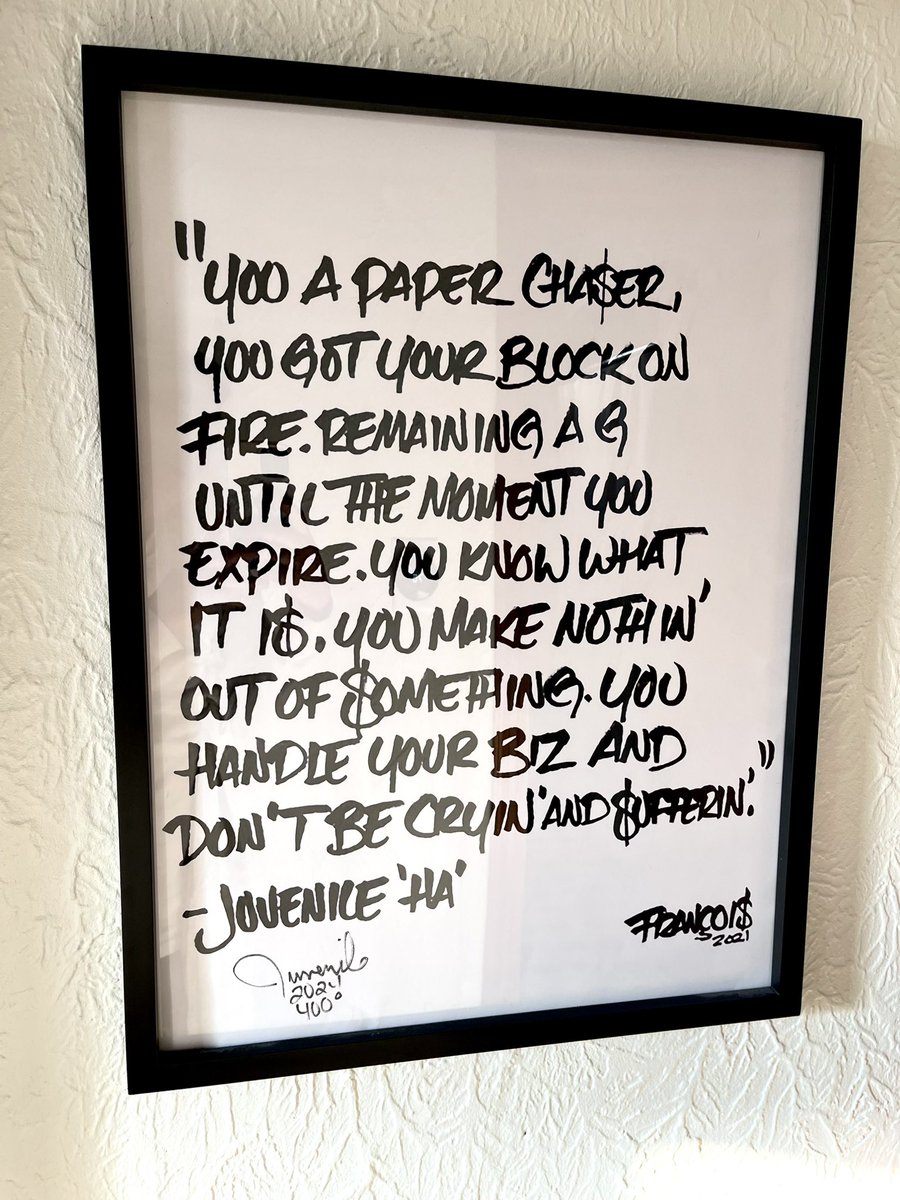 "YOU A PAPER CHA$ER,
YOU GOT YOUR BLOCK ON
FIRE. REMAINING A G
UNTIL THE MOMENT YOU
EXPIRE. YOU KNOW WHAT
IT I$. YOU MAKE NOTHIN'
OUT OF $OMETHING. YOU
HANDLE YOUR BIZ AND
DON'T BE CRYIN' AND $UFFERIN'."
-JUVENILE 'HA'
FRANÇOI$
2021
Juvenile
2021
400°